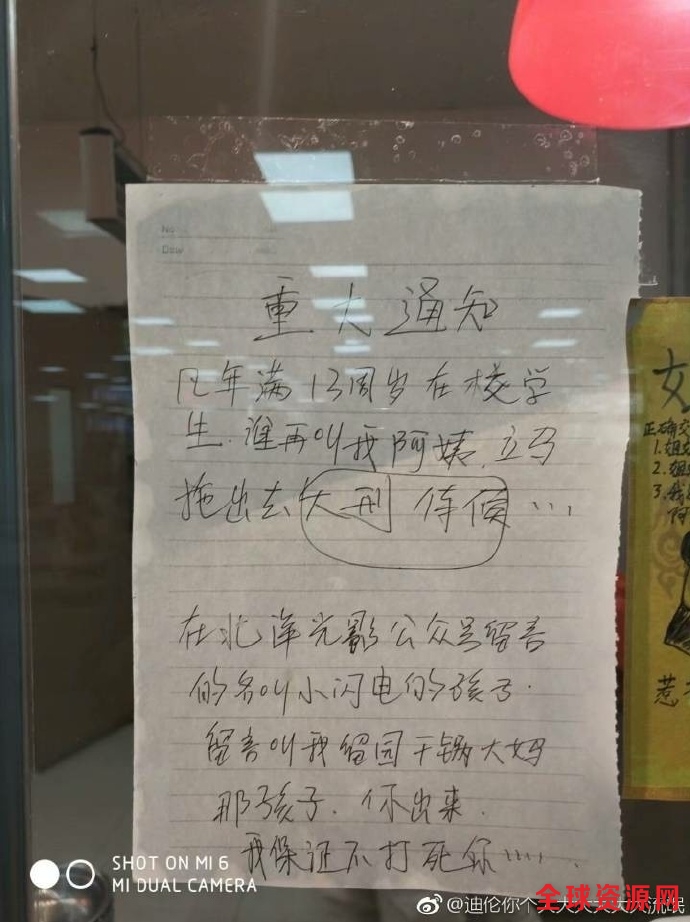 No
Date
重大通知
凡年满13周岁在校学
生.谁再叫我阿姨,立马
拖出去大刑 侍候…
在北洋光影公众号留言
的名叫小闪电的孩子.
留言叫我留园干锅大妈
那孩子.你出来.
我保证不打死你……
女
正确交
1.姐
2.姐
3.我
阿
惹
SHOT ON MI 6
MI DUAL CAMERA
@迪伦你个
流氓
全球资源网